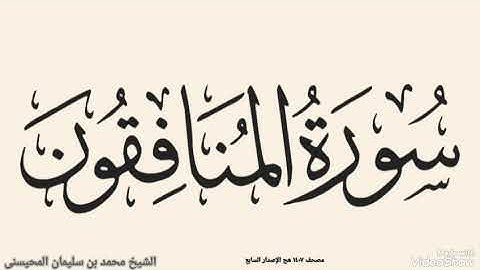 سُورَةُ الْمُنَافِقُونَ
مصحف ١٤٠٧ هج الإصدار السابع
الشيخ محمد بن سليمان المحيسني
VideoShow